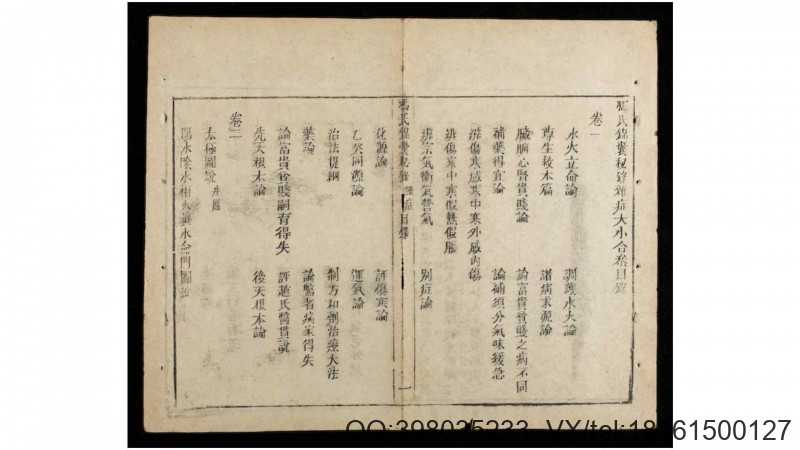 馮氏錦囊秘錄雜症大小合參目錄
卷一
水火立命論 調護水火論
尊生救本篇 諸病求源論
臟腑心腎貴賤論 論富貴貧賤之病不同
補藥得宜論 論補須分氣味緩急
辨傷寒感寒中寒外感內傷
辨傷寒中寒假熱假
辨宗氣衛氣營氣 別症論
馮氏錦囊秘錄 雜症目錄 一
化源論 評傷寒論
乙癸同源論 運氣論
治法提綱 制方和劑治療大法
藥論 論醫者病家得失
論富貴貧賤嗣育得失 評趙氏醫貫說
先天根本論 後天根本論
卷二
太極圖說 并圖
陽水陰水相火真水命門圖
QQ:398035233 VX/tel:18 61500127